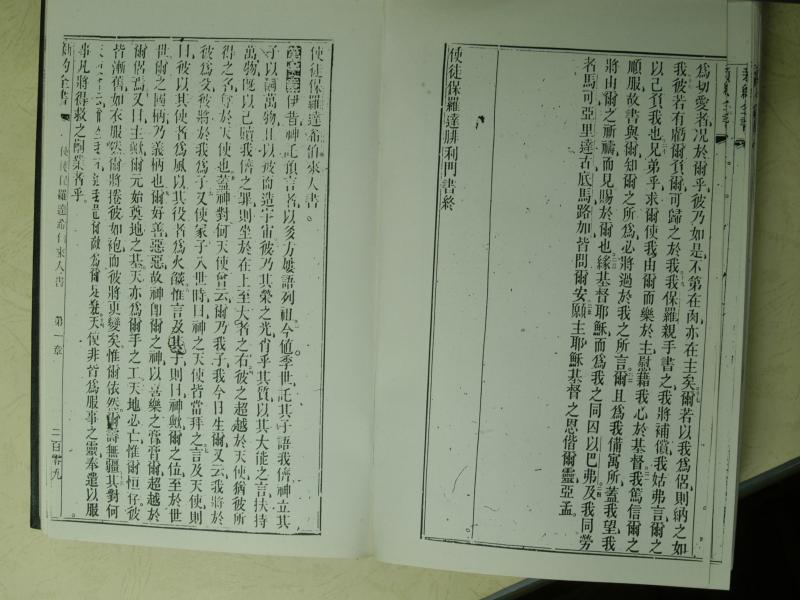 為切愛者況於爾乎彼乃如是不第在肉亦在主矣爾若以我為侶則納之如
我彼若有虧爾負爾可歸之於我我保羅親手書之我將補償我姑弗言爾之
以己負我也兄弟乎求爾使我由爾而樂於主慰藉我心於基督我篤信爾之
順服故書與爾知爾之所為必將過於我之所言爾且為我備寓所蓋我望我
將由爾之祈禱而見賜於爾也緣基督耶穌而為我之同囚以巴弗及我同勞
者馬可亞里達古底馬路加皆問爾安願主耶穌基督之恩偕爾靈亞孟
使徒保羅達腓利門書終
使徒保羅達希伯來人書
伊昔神託預言者以多方屢語列祖今値季世託其子語我儕神立其
子以嗣萬物且以彼而造宇宙彼乃其榮之光肖乎其質以其大能之言扶持
萬物既以己贖我儕之罪則坐於在上至大者之右彼之超越於天使猶彼所
得之名奇於天使也蓋神對何天使曾云爾乃我子我今日生爾又云我將於
彼為父彼將於我為子又使冢子入世時曰神之天使皆當拜之言及天使則
曰彼以其使者為風以其役者為火燄惟言及其子則曰神歟爾之位至於世
世爾之國柄乃義柄也爾好善惡惡故神即爾之神以喜樂之膏膏爾超越於
爾侶焉又曰主歟爾元始奠地之基天亦為爾手之工天地必亡惟爾恒存彼
皆漸舊如衣服然爾將捲彼如袍而彼將更變矣惟爾依然爾壽無疆其對何
天使非皆為服事之靈奉遣以服
事凡將得救之嗣業者乎
新約全書
使徒保羅達希伯來人書
第一章
二百零九